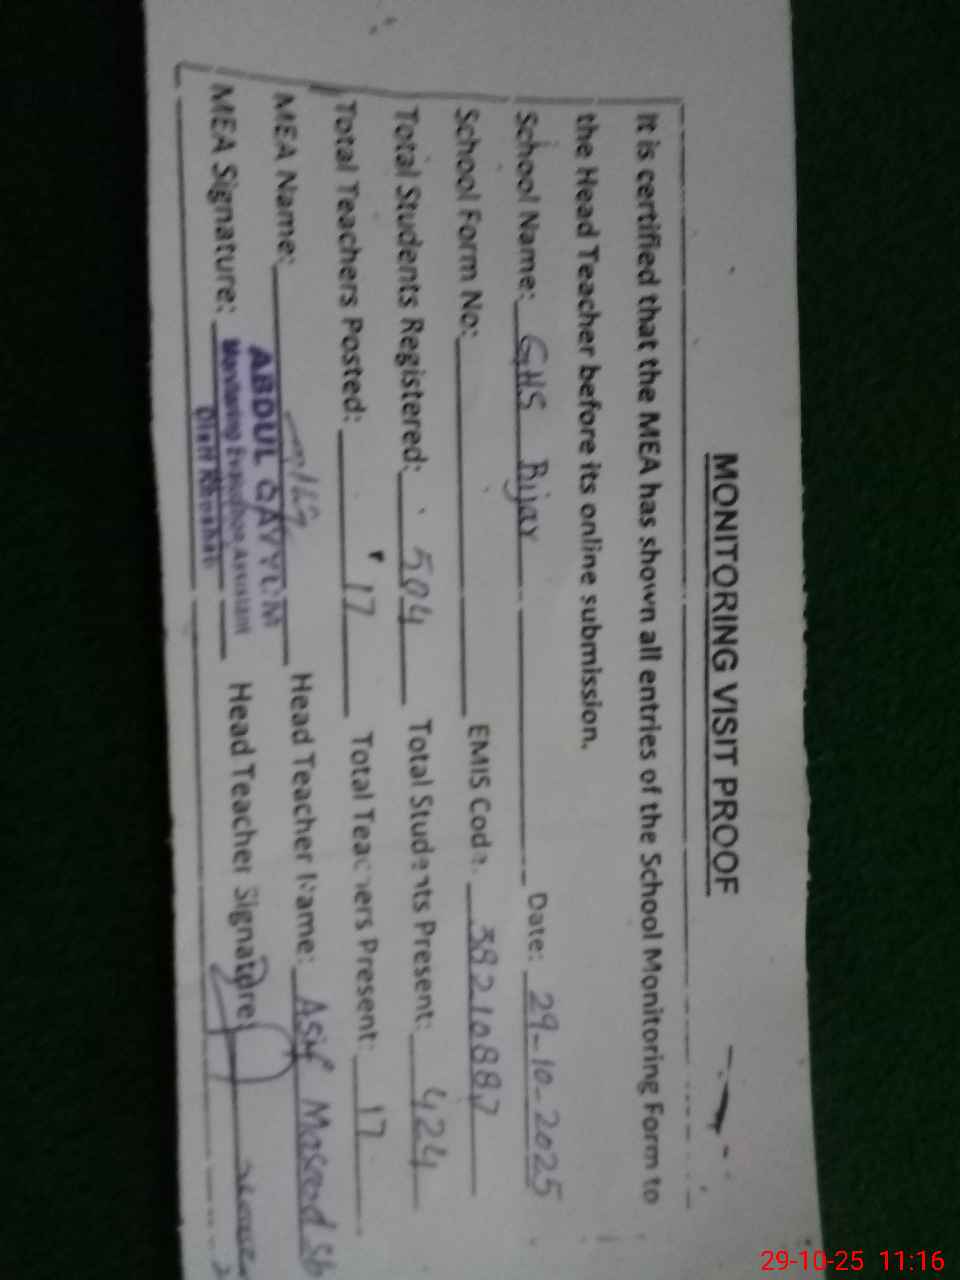 MONITORING VISIT PROOF
It is certified that the MEA has shown all entries of the School Monitoring Form to
the Head Teacher before its online submission.
School Name: GHS Bijar Date: 29-10-2025
School Form No: EMIS Code:
Total Students Registered: 504 Total Students Present: 424
Total Teachers Posted: 17 Total Teachers Present: 17
MEA Name: ABDUL QAYYUM Head Teacher Name: Asif Masood Sb
MEA Signature: Monitoring Evaluation Assistant Head Teacher Signature:
Distt
29-10-25 11:16